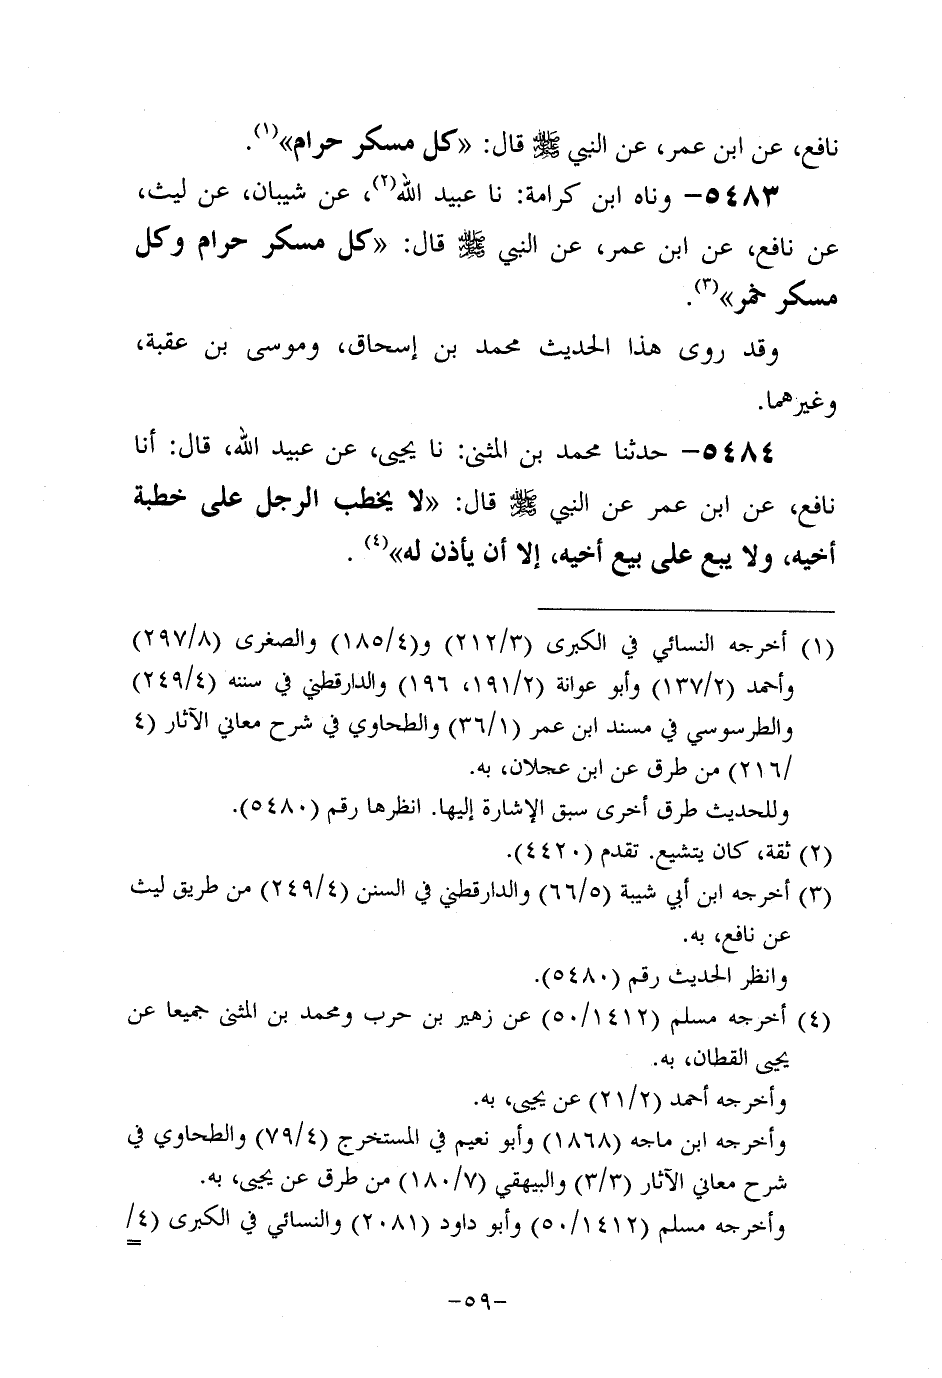 نافع، عن ابن عمر، عن النبي ﷺ قال: «كل مسكر حرام»(١).
٥٤٨٣– وناه ابن كرامة: نا عبيد الله(٢)، عن شيبان، عن ليث،
عن نافع، عن ابن عمر، عن النبي ﷺ قال: «كل مسكر حرام وكل
مسكر خمر»(٣).
وقد روى هذا الحديث محمد بن إسحاق، وموسى بن عقبة،
وغيرهما.
٥٤٨٤– حدثنا محمد بن المثنى: نا يحيى، عن عبيد الله، قال: أنا
نافع، عن ابن عمر عن النبي ﷺ قال: «لا يخطب الرجل على خطبة
أخيه، ولا يبع على بيع أخيه، إلا أن يأذن له»(٤) .
(١) أخرجه النسائي في الكبرى (٢١٢/٣) و(١٨٥/٤) والصغرى (٢٩٧/٨)
وأحمد (١٣٧/٢) وأبو عوانة (١٩١/٢، ١٩٦) والدارقطني في سننه (٢٤٩/٤)
والطرسوسي في مسند ابن عمر (٣٦/١) والطحاوي في شرح معاني الآثار (٤
/٢١٦) من طرق عن ابن عجلان، به.
وللحديث طرق أخرى سبق الإشارة إليها. انظرها رقم (٥٤٨٠).
(٢) ثقة، كان يتشيع. تقدم (٤٤٢٠).
(٣) أخرجه ابن أبي شيبة (٦٦/٥) والدارقطني في السنن (٢٤٩/٤) من طريق ليث
عن نافع، به.
وانظر الحديث رقم (٥٤٨٠).
(٤) أخرجه مسلم (٥٠/١٤١٢) عن زهير بن حرب ومحمد بن المثنى جميعا عن
يحيى القطان، به.
وأخرجه أحمد (٢١/٢) عن يحيى، به.
وأخرجه ابن ماجه (١٨٦٨) وأبو نعيم في المستخرج (٧٩/٤) والطحاوي في
شرح معاني الآثار (٣/٣) والبيهقي (١٨٠/٧) من طرق عن يحيى، به.
وأخرجه مسلم (٥٠/١٤١٢) وأبو داود (٢٠٨١) والنسائي في الكبرى (٤/
=
–٥٩–